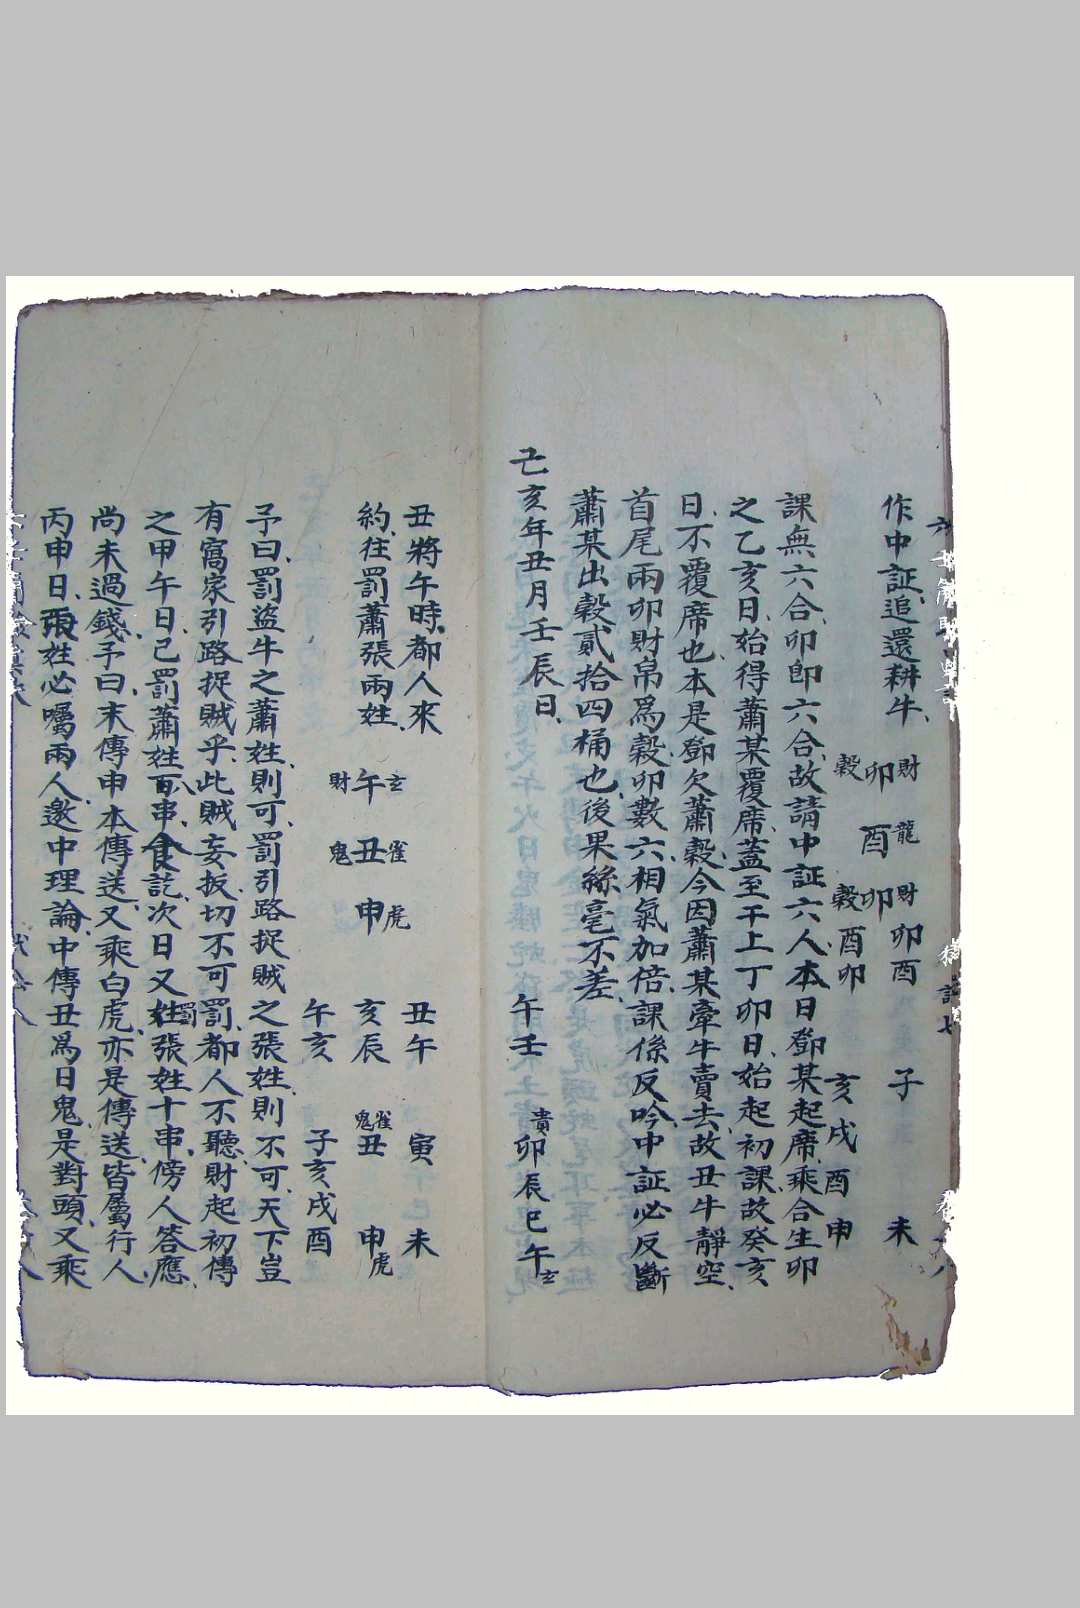 作中証追還耕牛
財 龍 財 卯酉 子 未
卯 酉 卯
穀 穀 酉卯 亥戌酉申
課無六合卯即六合故請中証六人本日鄧某起席乘合生卯
之乙亥日始得蕭某覆席蓋至干上丁卯日始起初課故癸亥
日不覆席也本是鄧欠蕭穀今因蕭某牽牛賣去故丑牛靜空
首尾兩卯財帛爲穀卯數六相氣加倍課係反吟中証必反斷
蕭某出穀貳拾四桶也後果絲毫不差
己亥年丑月壬辰日 午壬 貴卯辰巳午玄
丑將午時都人來 丑午 寅 未
約往罰蕭張兩姓 玄 雀 虎 亥辰 雀 丑 申虎
財午 鬼丑 申 鬼
午亥 子亥戌酉
予曰罰盜牛之蕭姓則可罰引路捉賊之張姓則不可天下豈
有窩家引路捉賊乎此賊妄扳切不可罰都人不聽財起初傳
之甲午日已罰蕭姓百串食訖次日又罰張姓十串傍人答應
尚未過錢予曰末傳申本傳送又乘白虎亦是傳送皆屬行人
丙申日張姓必囑兩人邀中理論中傳丑爲日鬼是對頭又乘